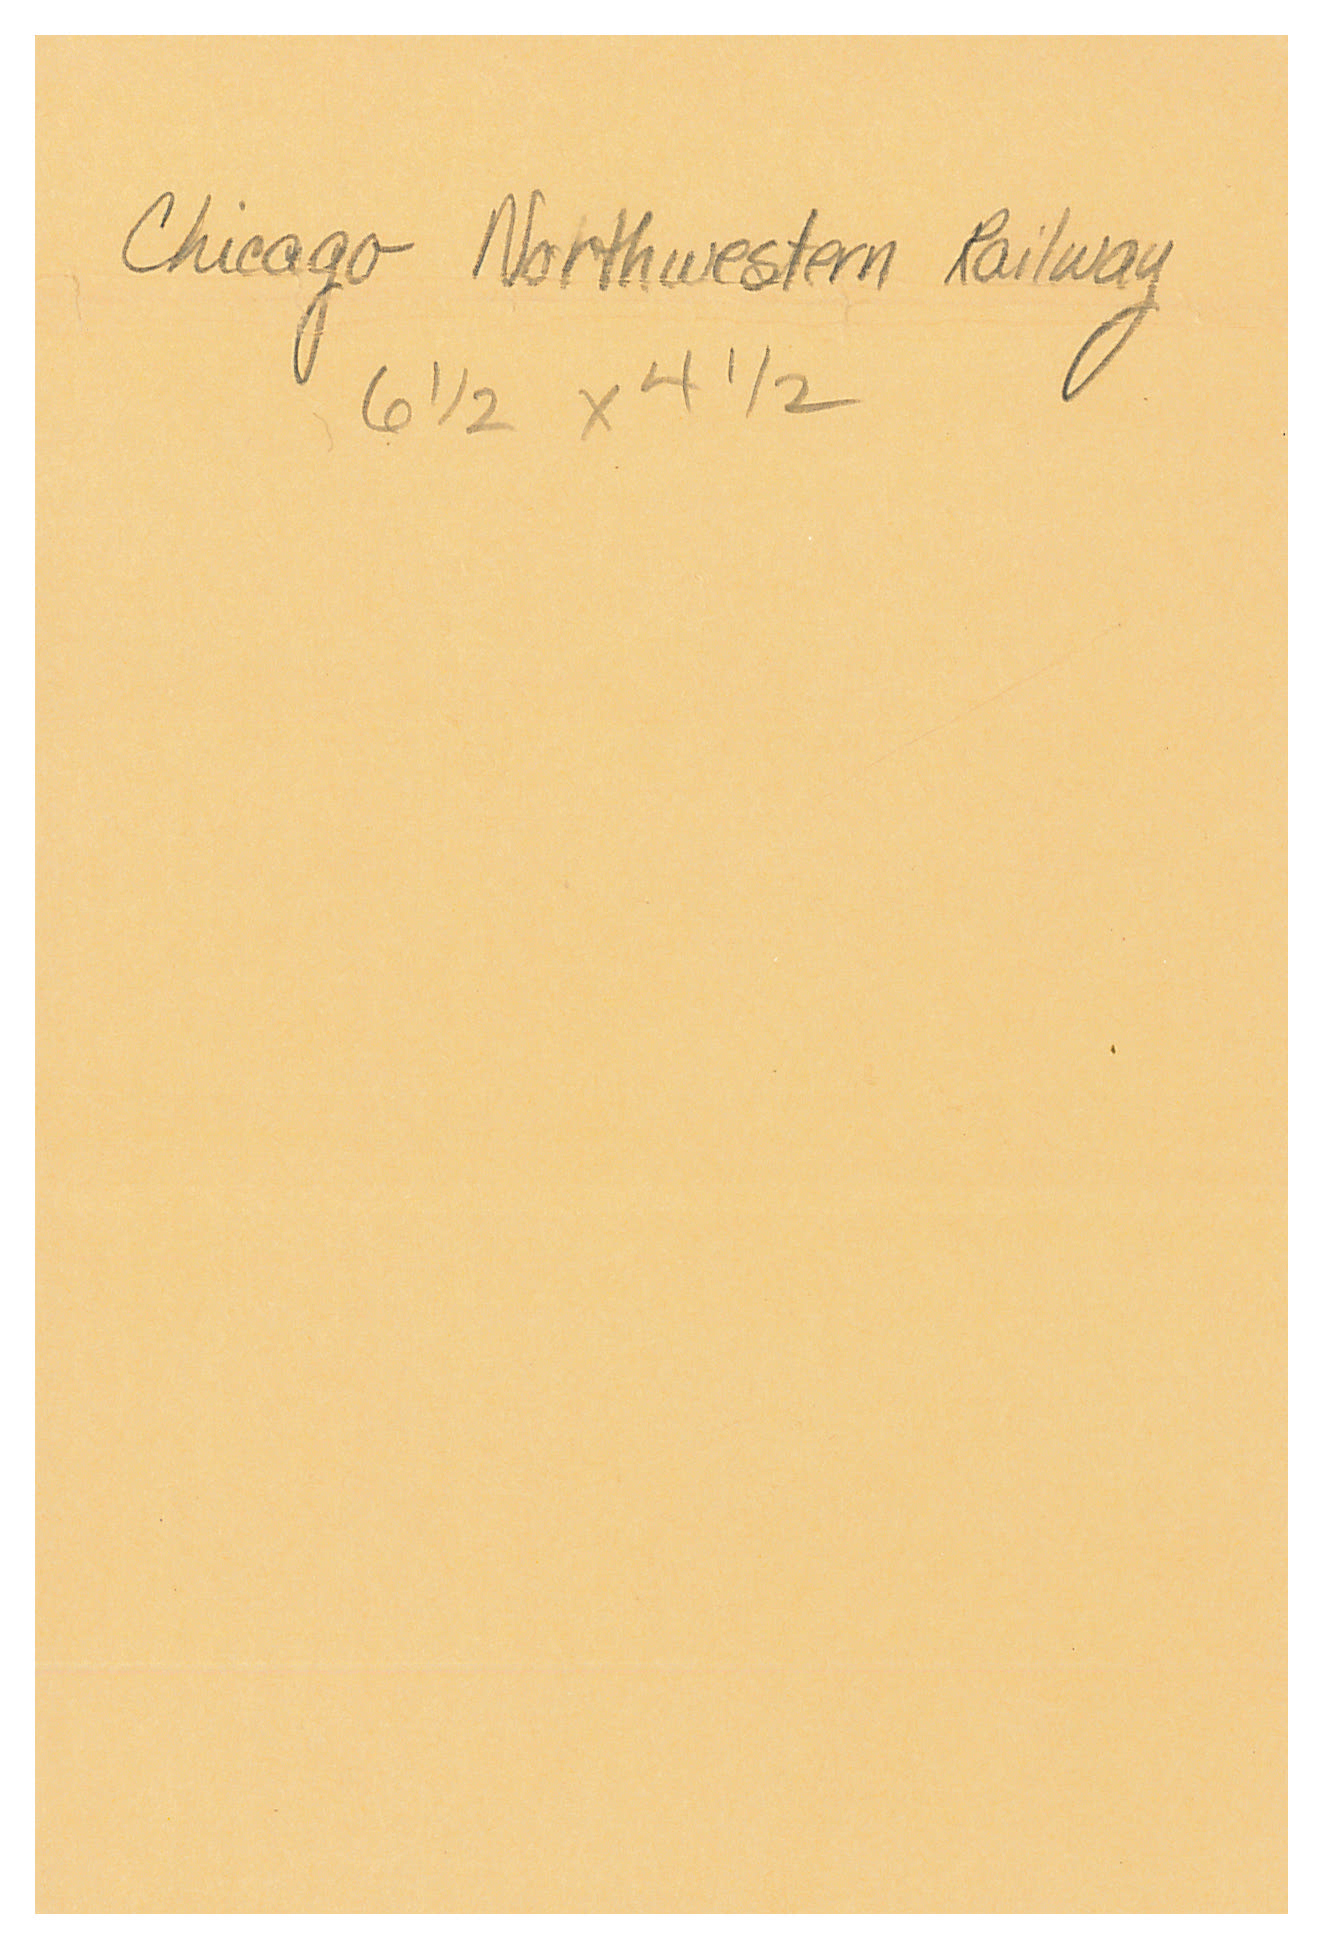 Chicago Northwestern Railway
6 1/2 x 4 1/2